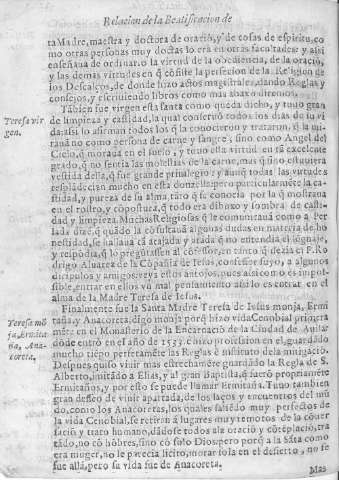 Relacion de la Beatificacion de
ta Madre, maestra y doctora de oració, y de cosas de espiritu, co
mo otras personas muy doctas lo era en otras facultades: y assi
enseñaua de ordinario la virtud de la obediencia, de la oració,
y las demas virtudes en q̃ cõsiste la perfecion de la Religion de
los Descalços, de donde hizo actos magistrales, dando Reglas y
consejos, y escriuiendo libros como mas abaxo diremos.
Tãbien fue virgen esta santa como queda dicho, y tuuo gran
Teresa vir
gen.
de limpieza y castidad, la qual conseruò todos los dias de su vi
da: assi lo afirman todos los q̃ la conocieron y trataron, q̃ la mi
rauã no como persona de carne y sangre, sino como Angel del
Cielo, q̃ moraua en el suelo, y tuuo esta virtud en tã excelente
grado, q̃ no sentia las molestias de la carne, mas q̃ sino estuuiera
vestida della, q̃ fue grande priuilegio: y aunq̃ todas las virtudes
resplãdecian mucho en esta donzella, pero particularmẽte la ca-
stidad, y pureza de su alma, tãto q̃ se conocia por la q̃ mostraua
en el rostro, y cõpostura, q̃ todo era dibuxo y sombra de casti-
dad y limpieza. Muchas Religiosas q̃ le comunicauã como a Per
lada dizẽ, q̃ quãdo la cõsultauã algunas dudas en materia de ho
nestidad, se hallaua tã atajada y atada q̃ no entendia el lenguaje,
y respõdia, q̃ lo preguntassen al cõfessor, en tanto q̃ dezia el P. Ro
drigo Aluarez de la Cõpañia de Iesus, cõfessor suyo, a algunos
dicipulos y amigos, reys estos antojos, pues assi como es impos-
sible, entrar en ellos vn mal pensamiento assi lo es entrar en el
alma de la Madre Teresa de Iesus.
Finalmente fue la Santa Madre Teresa de Iesus monja, Ermi
Teresa mõ
ja, Ermita-
ña, Ana-
coreta,
taña, y Anacoreta, digo monja porq̃ hizo vida Cenobial primera
mẽte en el Monasterio de la Encarnaciõ de la Ciudad de Auila,
dõde entrò en el año de 1535. hizo profession en el, guardãdo
mucho tiẽpo perfetamẽte las Reglas è instituto de la mitigaciõ.
Despues quiso viuir mas estrechamẽte guardãdo la Regla de S.
Alberto, imitãdo à Elias, y al gran Baptista, q̃ fuerõ propriamẽte
Ermitaños, y por esto se puede llamar Ermitaña. Tuuo tambien
gran desseo de viuir apartada, de los laços y encuentros del mũ
do, como los Anacoretas, los quales saliẽdo muy perfectos de
la vida Cenobial, se retirauã a lugares muy remotos de la cõuer
saciõ y trato humano, dãdose todos a la oraciõ y cõtẽplaciõ, tra
tãdo, no cõ hõbres, sino cõ solo Dios: pero porq̃ a la Sãta como
era muger, no le parecia licito, morar sola en el desierto, no se
fue allà, pero su vida fue de Anacoreta.
Mas